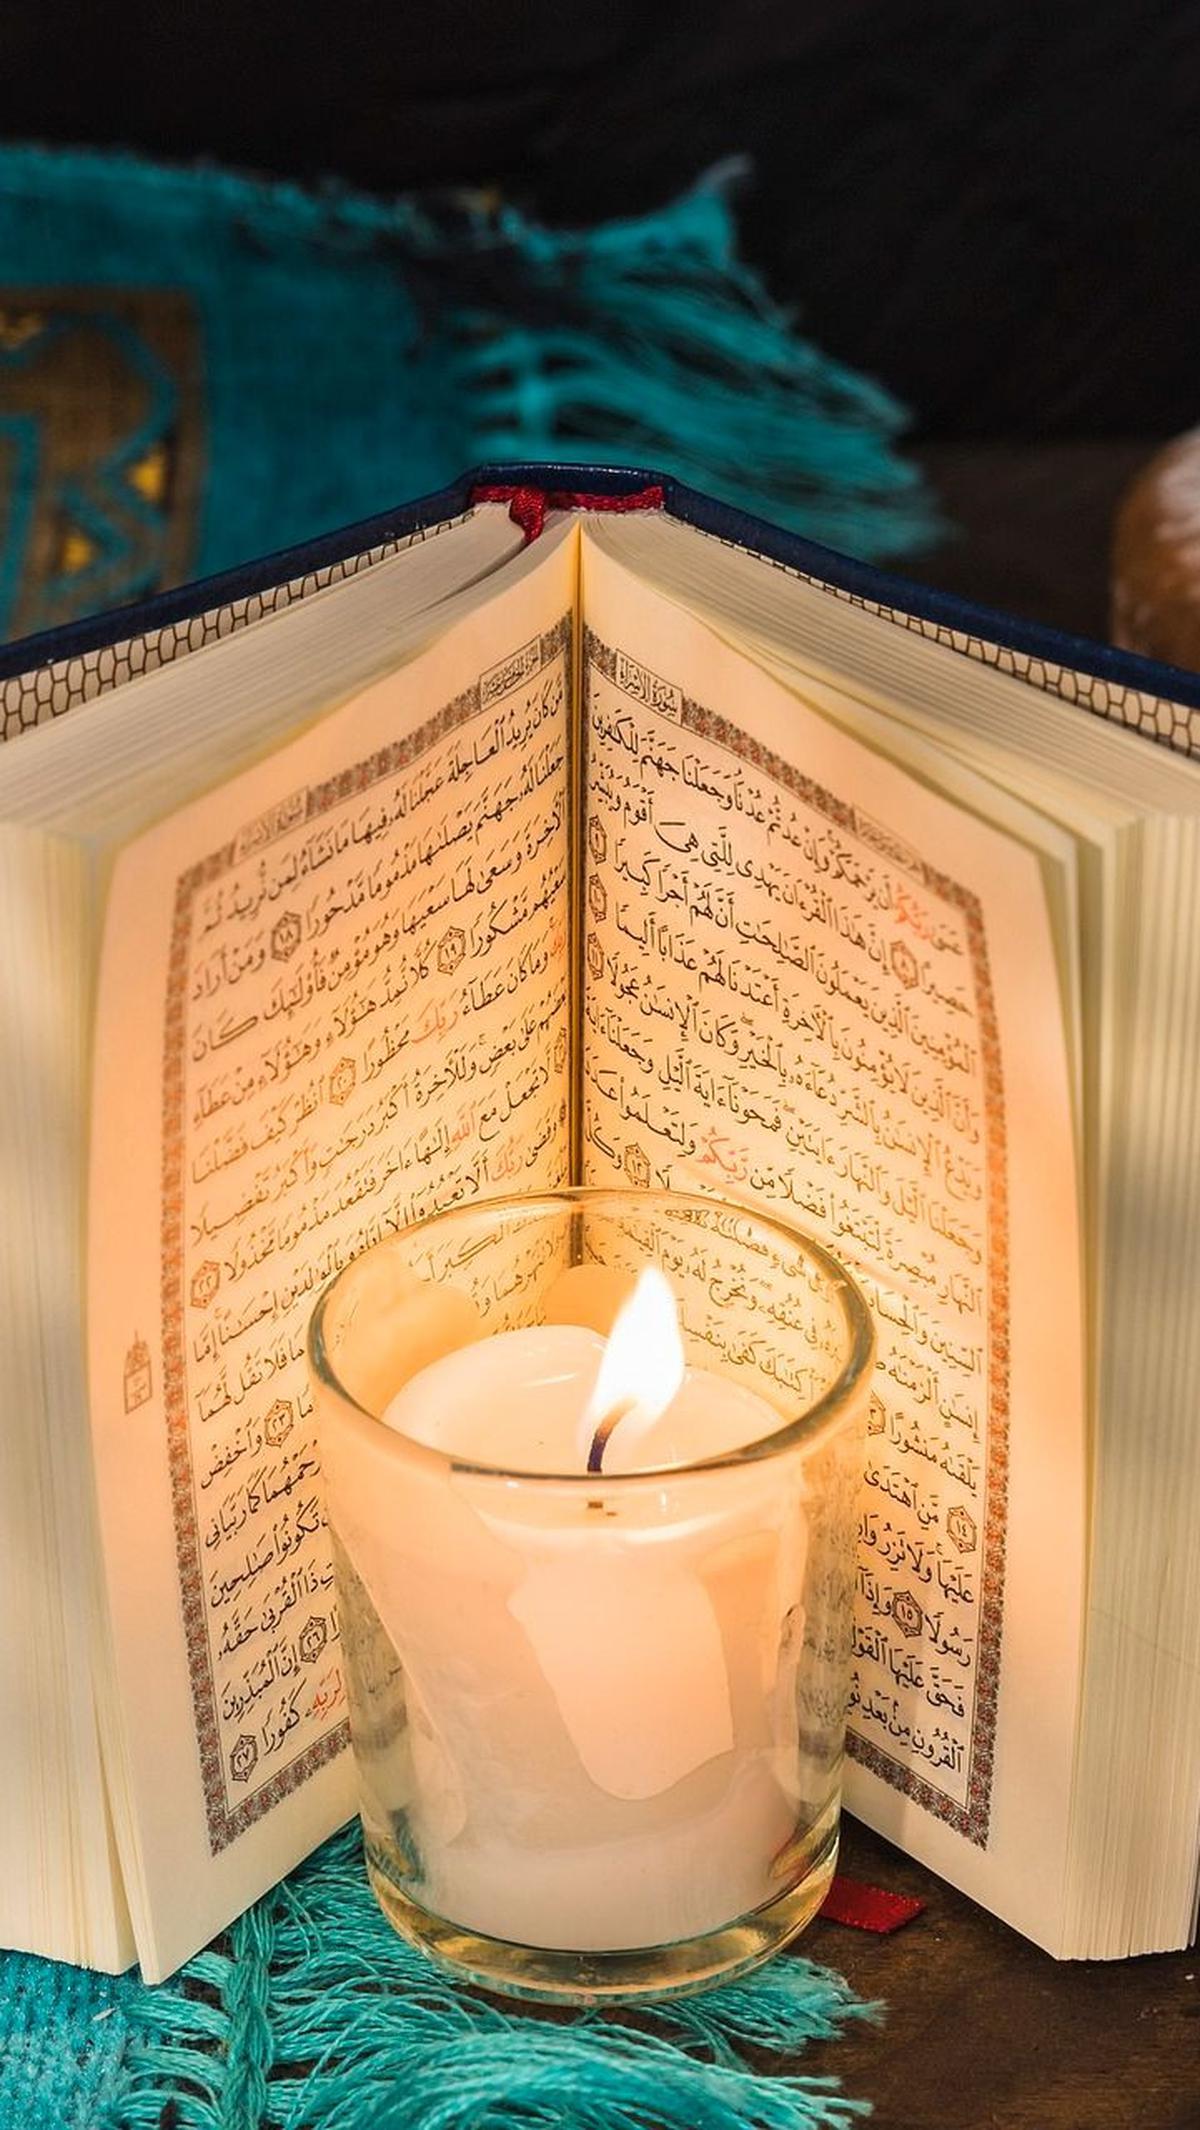 سُورَةُ الْإِسْرَاءِ
عَسَىٰ رَبُّكُمْ أَن يَرْحَمَكُمْ وَإِنْ عُدتُّمْ عُدْنَا وَجَعَلْنَا جَهَنَّمَ لِلْكَٰفِرِينَ
حَصِيرًا ٨ إِنَّ هَٰذَا ٱلْقُرْءَانَ يَهْدِى لِلَّتِى هِىَ أَقْوَمُ وَيُبَشِّرُ
ٱلْمُؤْمِنِينَ ٱلَّذِينَ يَعْمَلُونَ ٱلصَّٰلِحَٰتِ أَنَّ لَهُمْ أَجْرًا كَبِيرًا ٩
وَأَنَّ ٱلَّذِينَ لَا يُؤْمِنُونَ بِٱلْءَاخِرَةِ أَعْتَدْنَا لَهُمْ عَذَابًا أَلِيمًا ١٠
وَيَدْعُ ٱلْإِنسَٰنُ بِٱلشَّرِّ دُعَآءَهُۥ بِٱلْخَيْرِ وَكَانَ ٱلْإِنسَٰنُ عَجُولًا ١١
وَجَعَلْنَا ٱلَّيْلَ وَٱلنَّهَارَ ءَايَتَيْنِ فَمَحَوْنَآ ءَايَةَ ٱلَّيْلِ وَجَعَلْنَآ ءَايَةَ
ٱلنَّهَارِ مُبْصِرَةً لِّتَبْتَغُوا۟ فَضْلًا مِّن رَّبِّكُمْ وَلِتَعْلَمُوا۟ عَدَدَ
ٱلسِّنِينَ وَٱلْحِسَابَ شَىْءٍ فَصَّلْنَٰهُ ١٢ وَكُلَّ
إِنسَٰنٍ أَلْزَمْنَٰهُ فِى عُنُقِهِۦ وَنُخْرِجُ لَهُۥ يَوْمَ ٱلْقِيَٰمَةِ
يَلْقَىٰهُ مَنشُورًا كِتَٰبَكَ كَفَىٰ بِنَفْسِكَ
١٤ مَّنِ ٱهْتَدَىٰ
عَلَيْهَا وَلَا تَزِرُ
رَسُولًا ١٥ وَإِذَآ
فَحَقَّ عَلَيْهَا ٱلْقَوْلُ
ٱلْقُرُونِ مِنۢ بَعْدِ
سُورَةُ الْإِسْرَاءِ
مَّن كَانَ يُرِيدُ ٱلْعَاجِلَةَ عَجَّلْنَا لَهُۥ فِيهَا مَا نَشَآءُ لِمَن نُّرِيدُ ثُمَّ
جَعَلْنَا لَهُۥ جَهَنَّمَ يَصْلَىٰهَا مَذْمُومًا مَّدْحُورًا ١٨ وَمَنْ أَرَادَ
ٱلْءَاخِرَةَ وَسَعَىٰ لَهَا سَعْيَهَا وَهُوَ مُؤْمِنٌ فَأُو۟لَٰٓئِكَ كَانَ
سَعْيُهُم مَّشْكُورًا ١٩ كُلًّا نُّمِدُّ هَٰٓؤُلَآءِ وَهَٰٓؤُلَآءِ مِنْ عَطَآءِ
رَبِّكَ وَمَا كَانَ عَطَآءُ رَبِّكَ مَحْظُورًا ٢٠ ٱنظُرْ كَيْفَ فَضَّلْنَا
بَعْضَهُمْ عَلَىٰ بَعْضٍ وَلَلْءَاخِرَةُ أَكْبَرُ دَرَجَٰتٍ وَأَكْبَرُ تَفْضِيلًا
٢١ لَّا تَجْعَلْ مَعَ ٱللَّهِ إِلَٰهًا ءَاخَرَ فَتَقْعُدَ مَذْمُومًا مَّخْذُولًا ٢٢
وَقَضَىٰ رَبُّكَ أَلَّا تَعْبُدُوٓا۟ إِلَّآ إِيَّاهُ وَبِٱلْوَٰلِدَيْنِ إِحْسَٰنًا إِمَّا
ٱلْكِبَرَ فَلَا تَقُل لَّهُمَآ
تَنْهَرْهُمَا ٢٣ وَٱخْفِضْ
ٱرْحَمْهُمَا كَمَا رَبَّيَانِى
تَكُونُوا۟ صَٰلِحِينَ
ذَا ٱلْقُرْبَىٰ حَقَّهُۥ
٢٦ إِنَّ ٱلْمُبَذِّرِينَ
لِرَبِّهِۦ كَفُورًا ٢٧